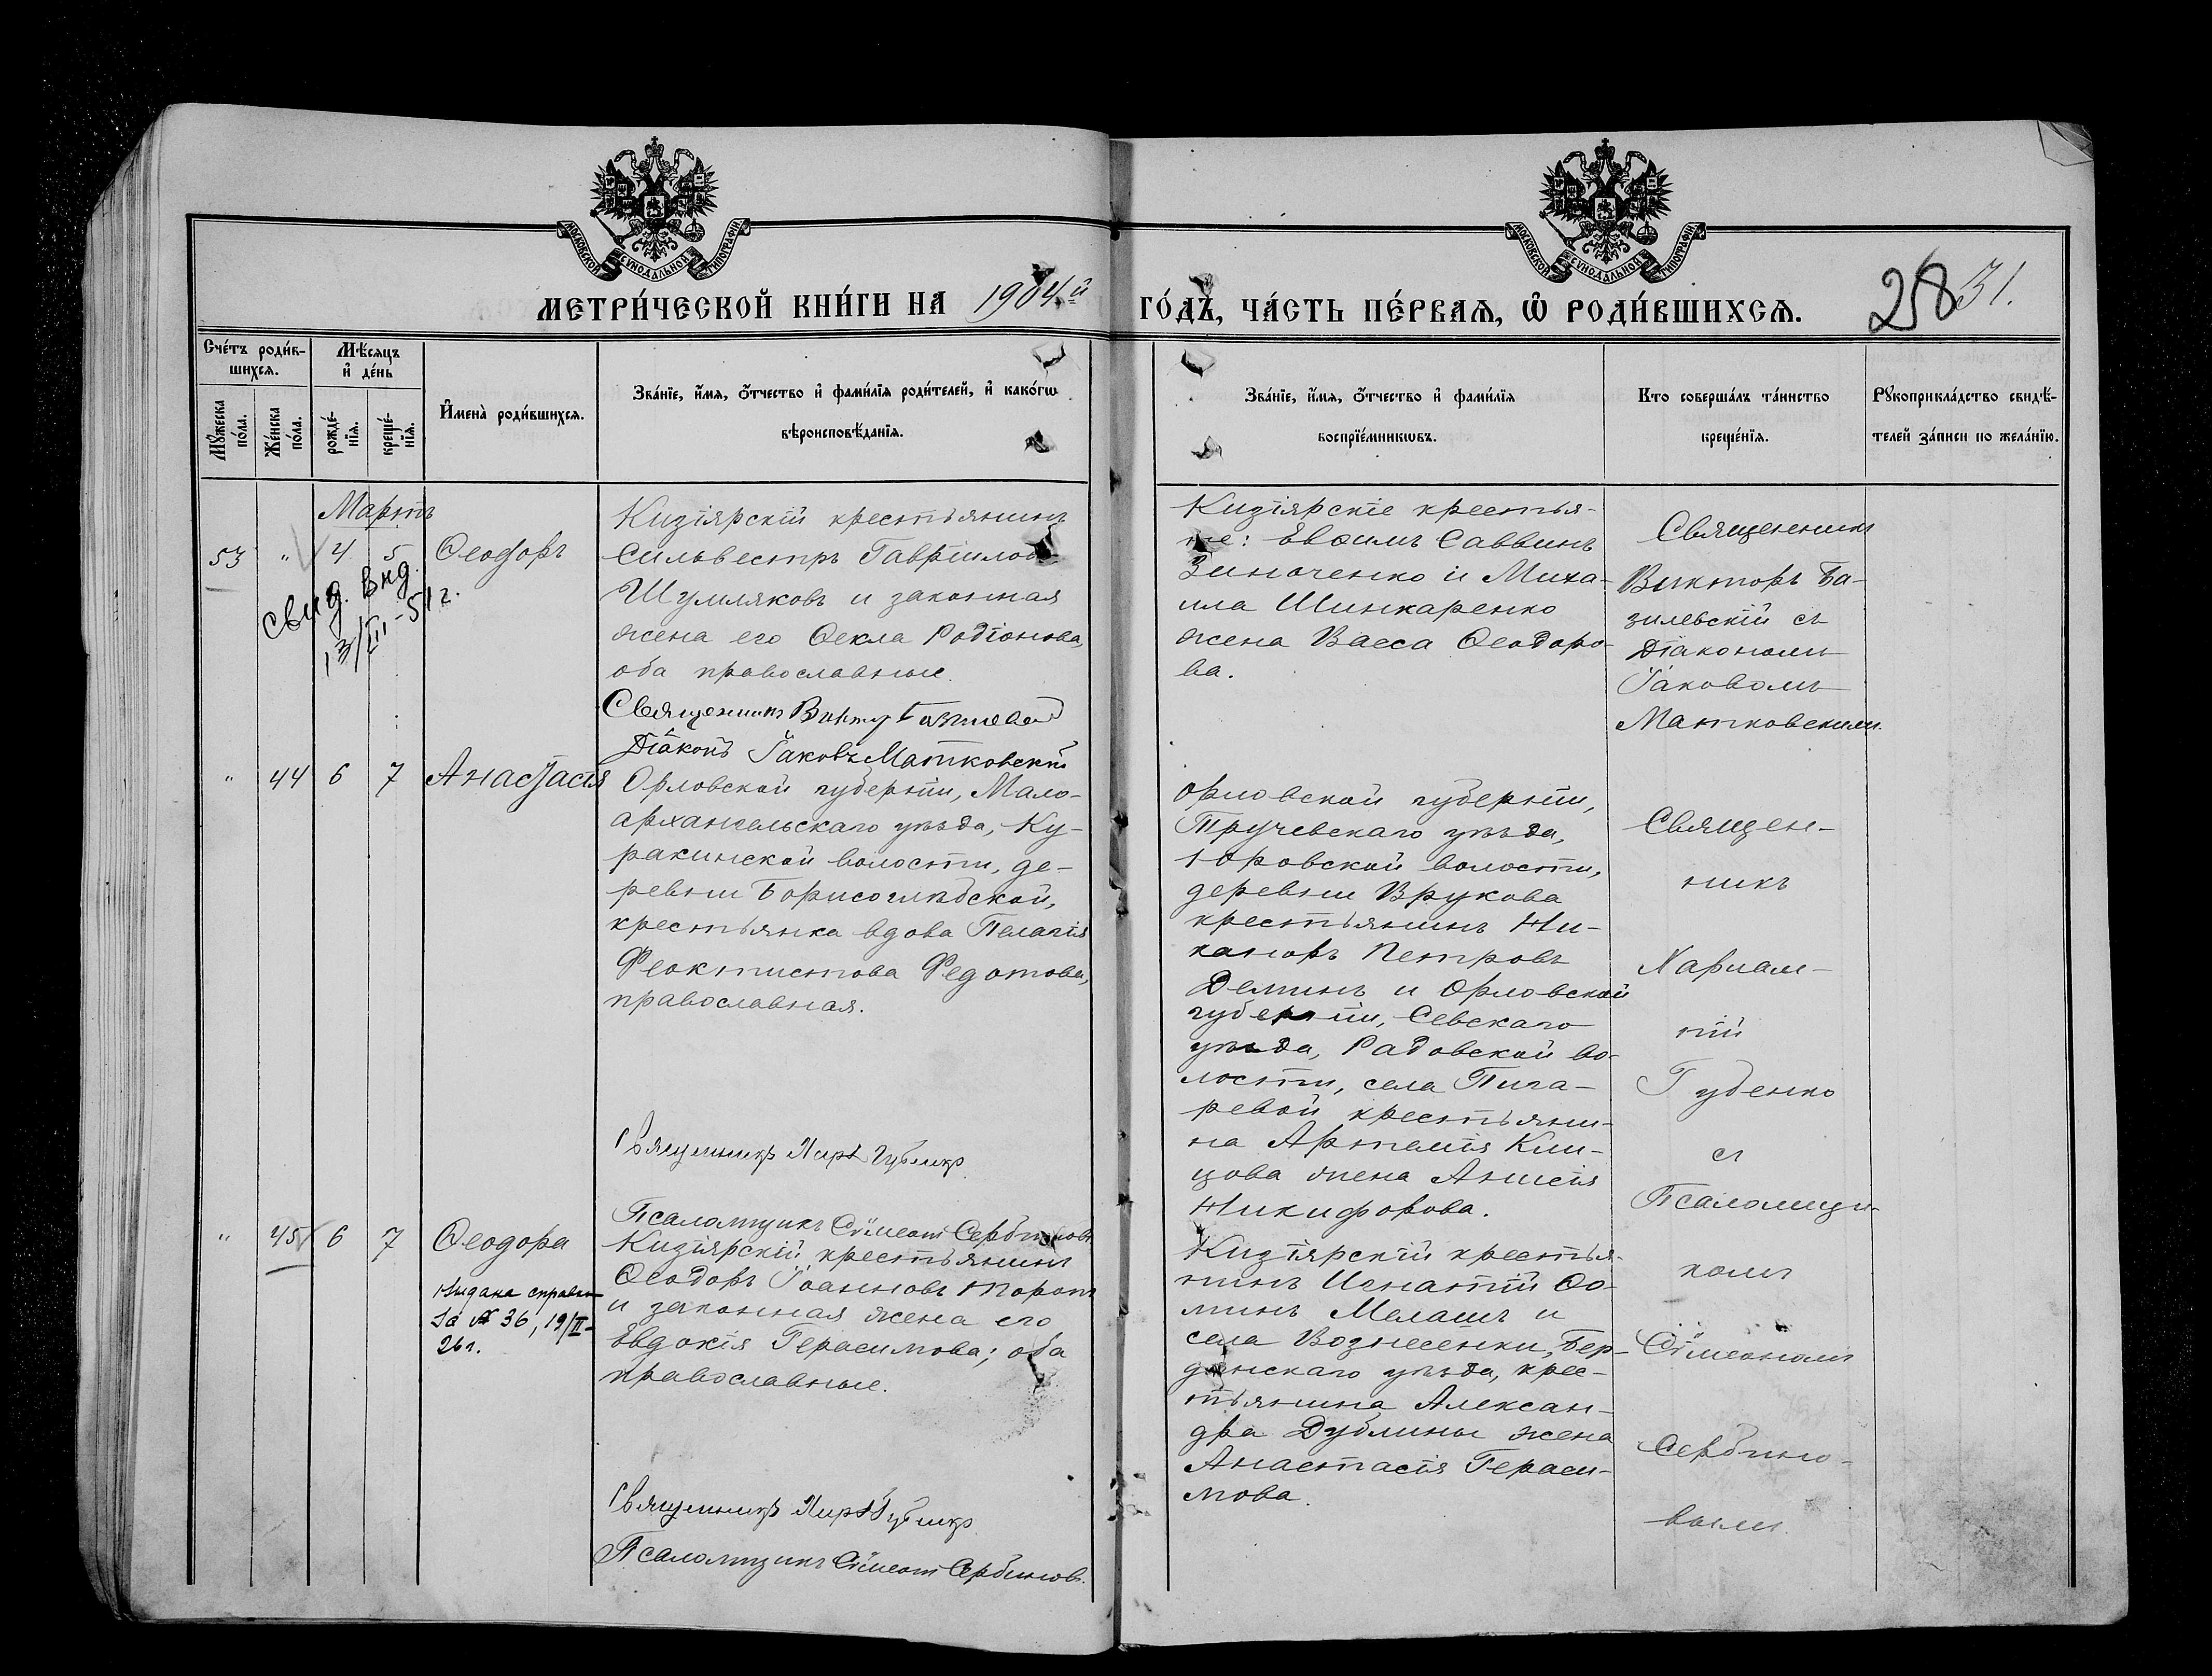 МОСКОВСКОЙ СѴНОДАЛЬНОЙ ТИПОГРАФІИ
МОСКОВСКОЙ СѴНОДАЛЬНОЙ ТИПОГРАФІИ
МЕТРИ́ЧЕСКОЙ КНИ́ГИ НА 1904й ГО́ДЪ, ЧА́СТЬ ПЕ́РВАѦ, Ѽ РОДИ́ВШИХСѦ.
28 31.
Сче́тъ роди́в-
шихсѧ.
Мѣ́сѧцъ
и҆ де́нь
Мꙋ́жеска
по́ла.
Же́нска
по́ла.
рожде́-
нїѧ.
креще́-
нїѧ.
И҆мена̀ роди́вшихсѧ.
Зва́нїе, и҆́мѧ, ѻ҆́тчество и҆ фами́лїѧ роди́телей, и҆ како́гѡ
вѣроисповѣ́данїѧ.
Зва́нїе, и҆́мѧ, ѻ҆́тчество и҆ фами́лїѧ
воспрїе́мникѡвъ.
Кто соверша́лъ та́инство
креще́нїѧ.
Рꙋкоприкла́дство свидѣ́-
телей за́писи по жела́нїю.
Мартъ
53 " 4 5 Ѳеодоръ
свид. выд.
13/III-51г.
Кизіярскій крестьянинъ
Сильвестръ Гавріиловъ
Шумляковъ и законная
жена его Ѳекла Родіонова,
оба православные.
Священникъ Викторъ Базилевскій
Діаконъ Іаковъ Матковскій
Кизіярскіе крестья-
не: Евѳимъ Саввинъ
Зиноченко и Миха-
ила Шинкаренко
жена Васса Ѳеодоро-
ва.
Священникъ
Викторъ Ба-
зилевскій съ
Діакономъ
Іаковомъ
Матковскимъ.
" 44 6 7 Анастасія
Орловской губерніи, Мало-
архангельскаго уѣзда, Ку-
ракинской волости, де-
ревни Борисоглѣбской,
крестьянка вдова Пелагія
Феоктистова Федотова,
православная.
Священникъ Хар. Губенко
Псаломщикъ Сѵмеонъ Сербиновъ
Орловской губерніи,
Тручевскаго уѣзда,
Юровской волости,
деревни Врукова
крестьянинъ Ни-
каноръ Петровъ
Деминъ и Орловской
губерніи, Севскаго
уѣзда, Радовской во-
лости, села Пига-
ревой крестьяни-
на Артемія Кин-
цова жена Анисія
Никифорова.
Священ-
никъ
Харлам-
пій
Губенко
съ
Псаломщи-
комъ
Сѵмеономъ
Сербино-
вымъ.
" 45 6 7 Ѳеодора
Выдана справка
за № 36, 19/II-
26г.
Кизіярскій крестьянинъ
Ѳеодоръ Іоанновъ Моротъ
и законная жена его
Евдокія Герасимова; оба
православные.
Священникъ Хар. Губенко
Псаломщикъ Сѵмеонъ Сербиновъ.
Кизіярскій крестья-
нинъ Игнатій Ѳо-
минъ Мелашъ и
села Вознесенки, Бер-
дянскаго уѣзда, крес-
тьянина Александ-
дра Дублины жена
Анастасія Гераси-
мова.